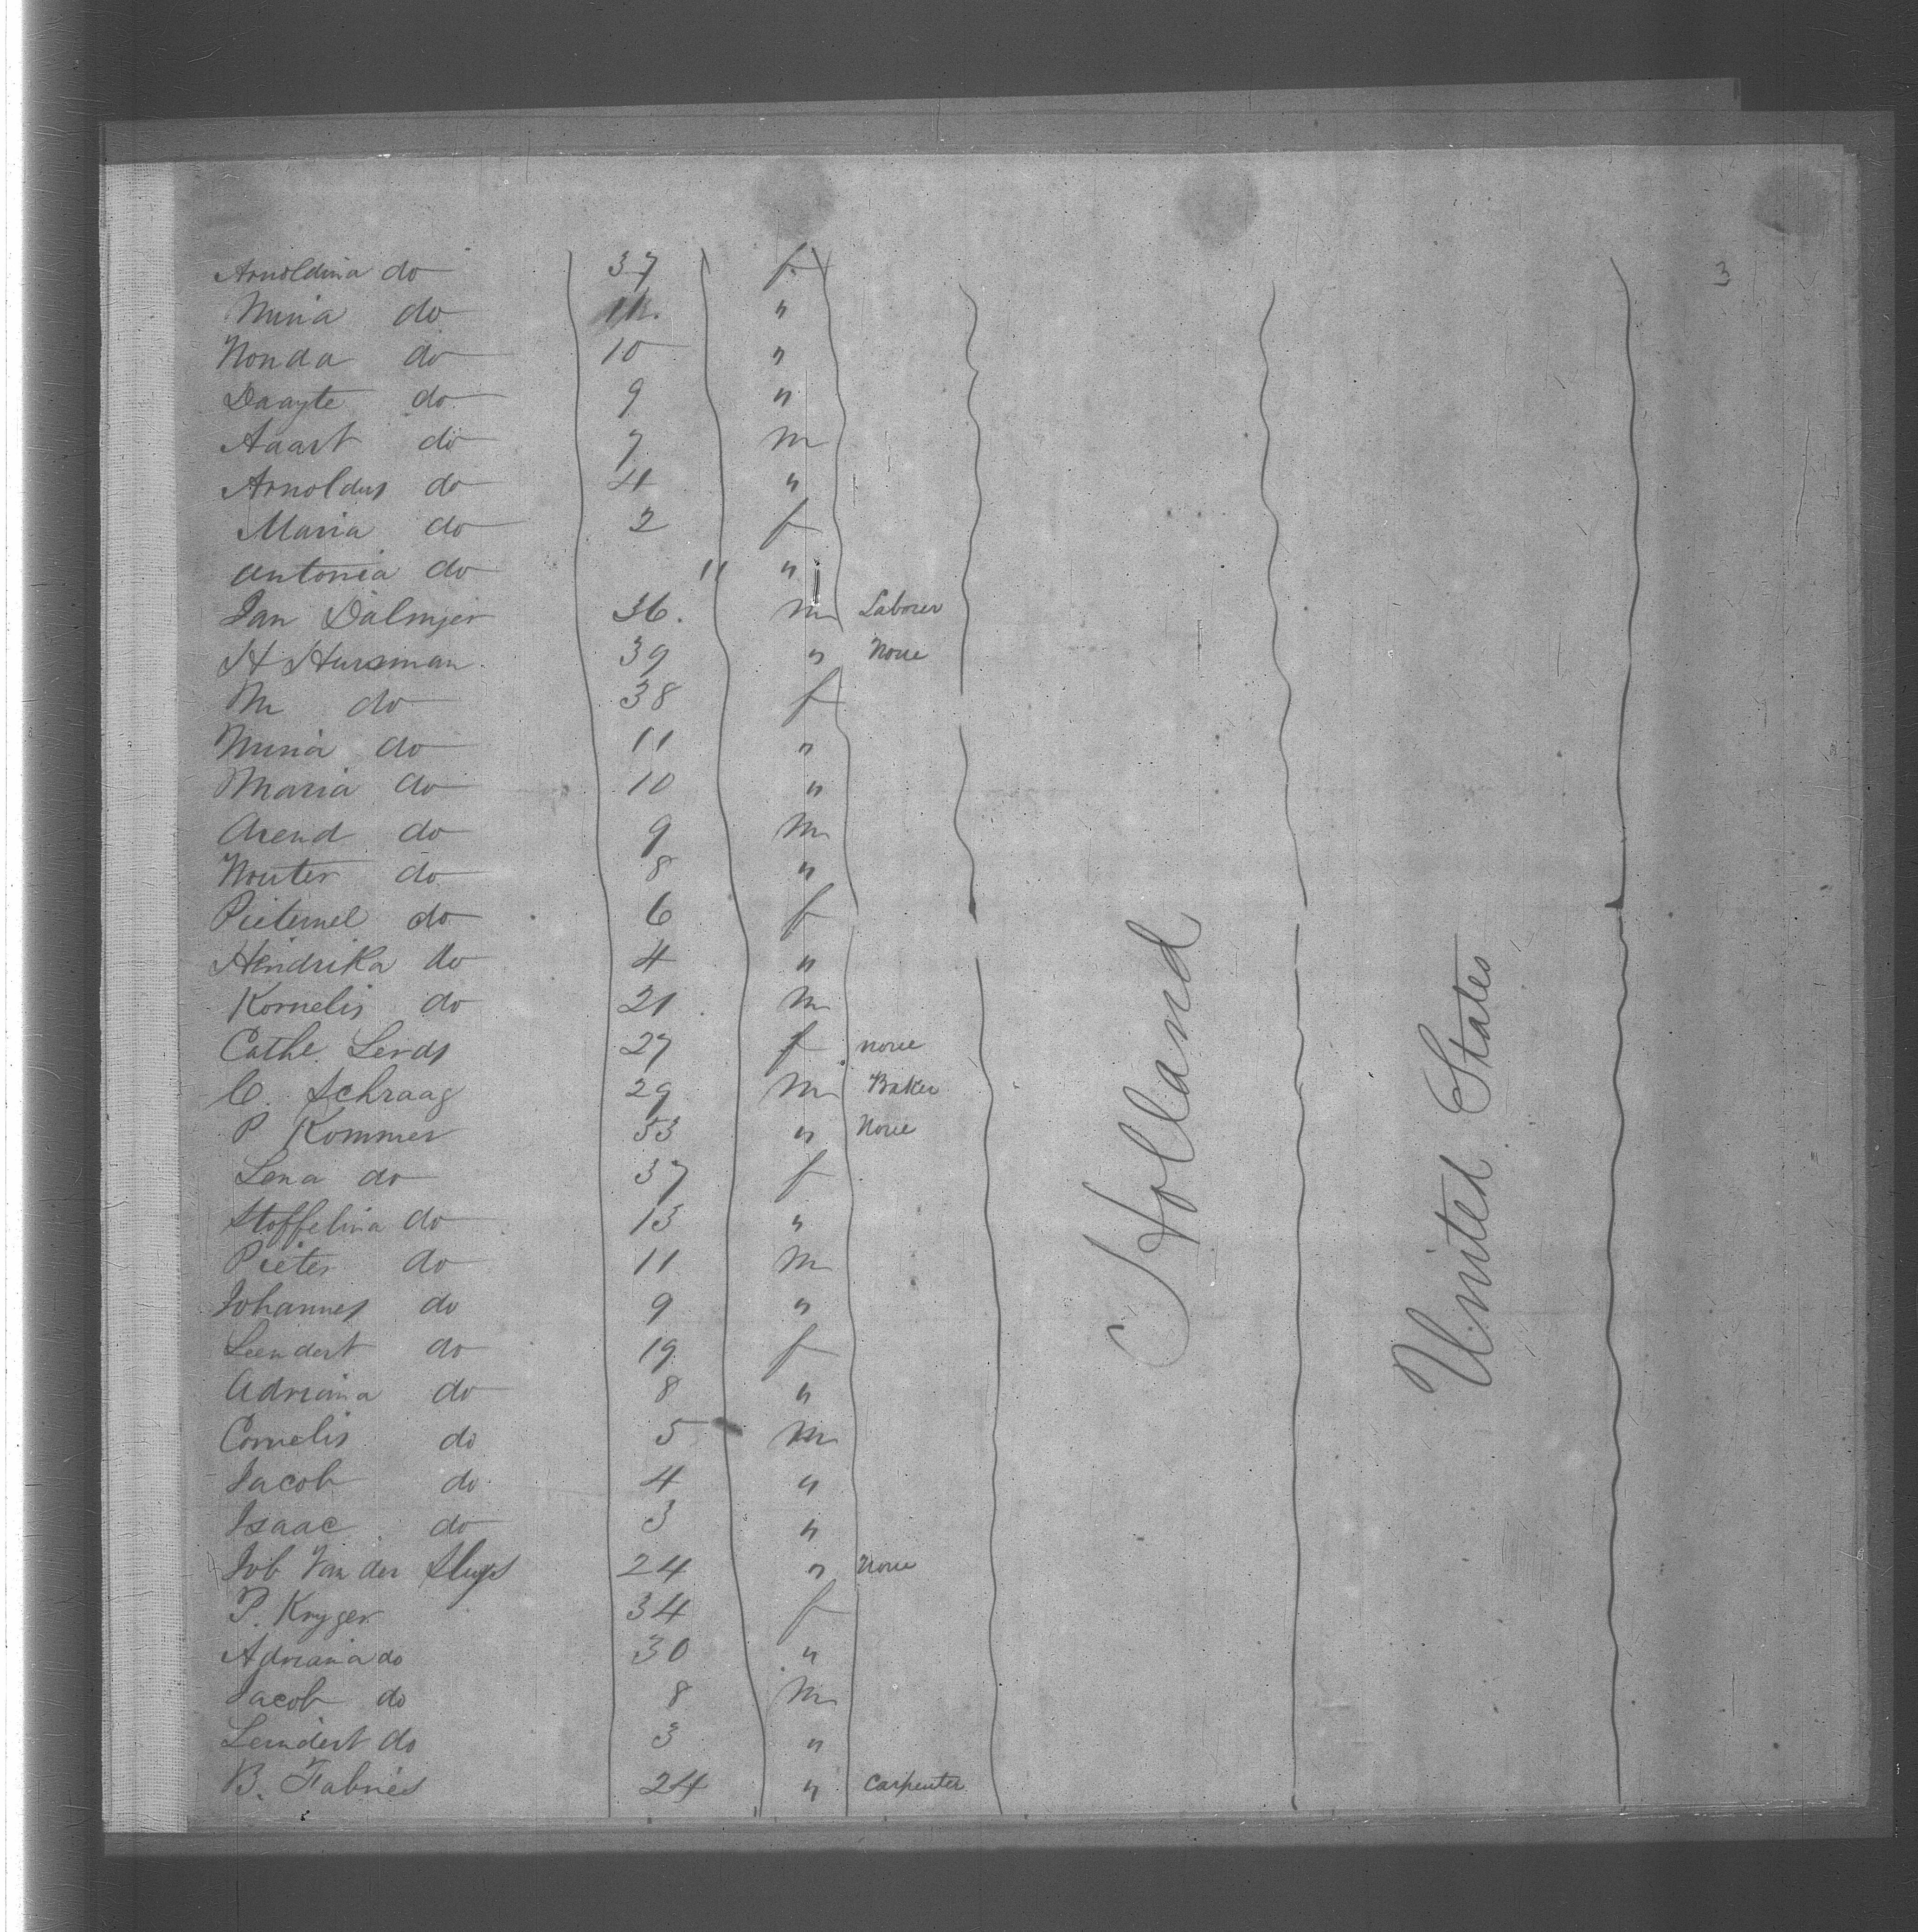 3
Arnoldina do 37 f
Mina do 11 "
Nonda do 10 "
Daayte do 9 "
Aaart do 7 m
Arnoldus do 4 "
Maria do 2 f
Antonia do 11 "
Jan Dalmjer 36. m Laborer
H Hursman 39 " None
M do 38 f
Mina do 11 "
Maria do 10 "
Arend do 9 m
Wouter do 8 "
Pieternel do 6 f
Hendrika do 4 "
Kornelis do 21 m
Cathe Lerds 27 f none
C. Schraag 29 m Baker
P Kommer 53 " None
Lena do 37 f
Stoffelina do 13 "
Pieter do 11 m
Johannes do 9 "
Leendert do 19 f
Adriana do 8 "
Cornelis do 5 m
Jacob do 4 "
Isaac do 3 "
Job Van der Sluys 24 " None
P. Kryger 34 f
Adriana do 30 "
Jacob do 8 m
Leendert do 3 "
B. Fabries 24 " Carpenter
Holland
United States